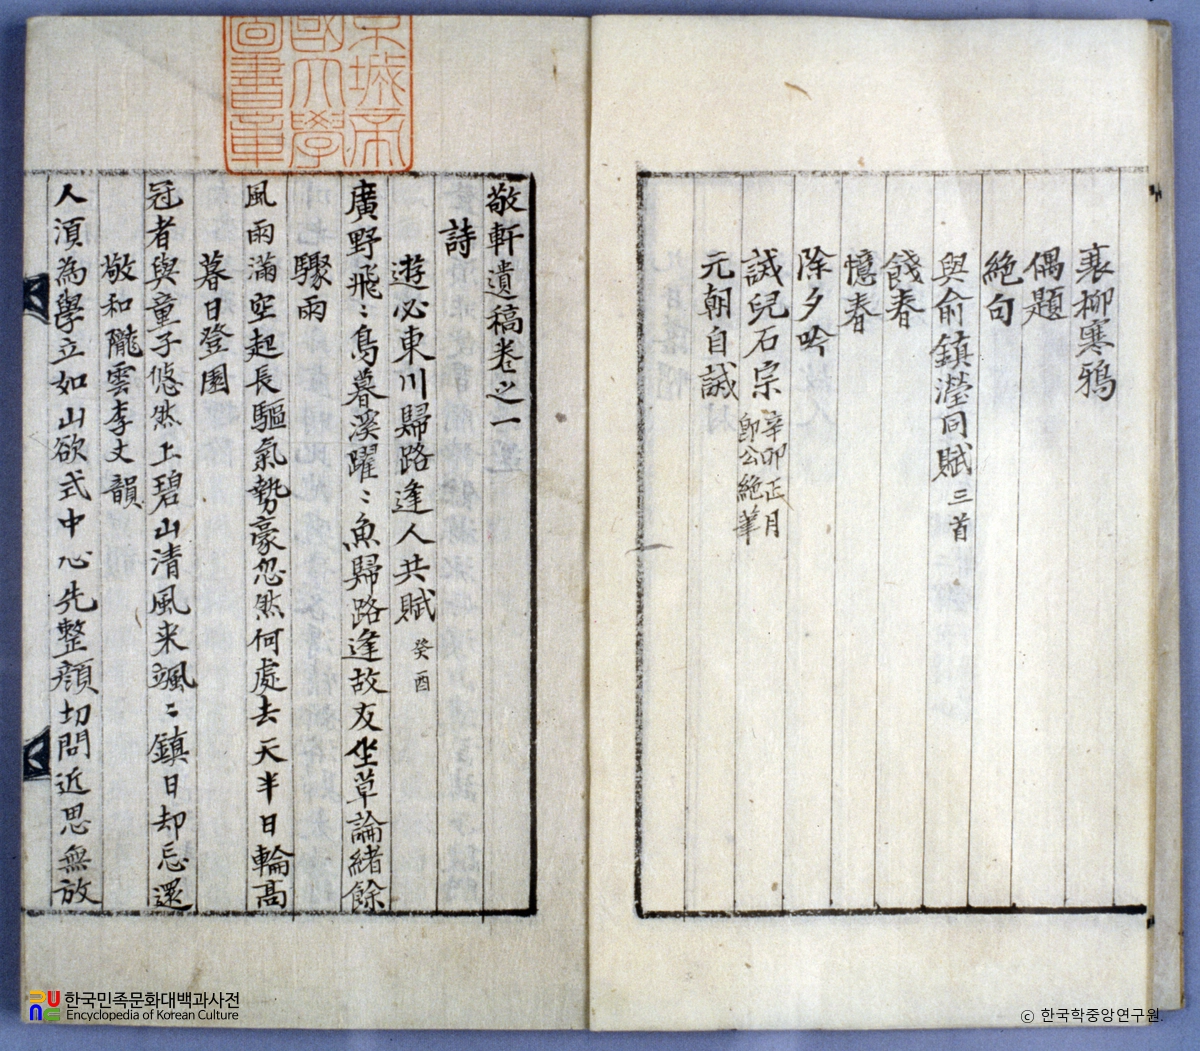 衰柳寒鴉
偶題
絶句
與俞鎮瀅同賦 三首
餞春
憶春
除夕吟
誡兒石宗 辛卯正月
即公絶筆
元朝自誡
京城帝
國大學
圖書章
敬軒遺稿卷之一
詩
遊必東川歸路逢人共賦 癸酉
廣野飛〻鳥暮溪躍〻魚歸路逢故友坐草論緒餘
驟雨
風雨滿空起長驅氣勢豪忽然何處去天半日輪高
暮日登園
冠者與童子悠然上碧山清風来颯〻鎮日却忘還
敬和隴雲李丈韻
人須為學立如山欲式中心先整顔切問近思無放
한국민족문화대백과사전
Encyclopedia of Korean Culture
ⓒ 한국학중앙연구원.